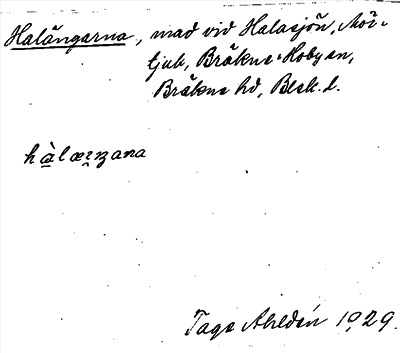 Halängarna, mad vid Halasjön, Mör-
ljuh, Bräkne-Hoby sn,
Bräkne hd, Blek. l.
hàlæŋana
Tage Ahldén 1929.